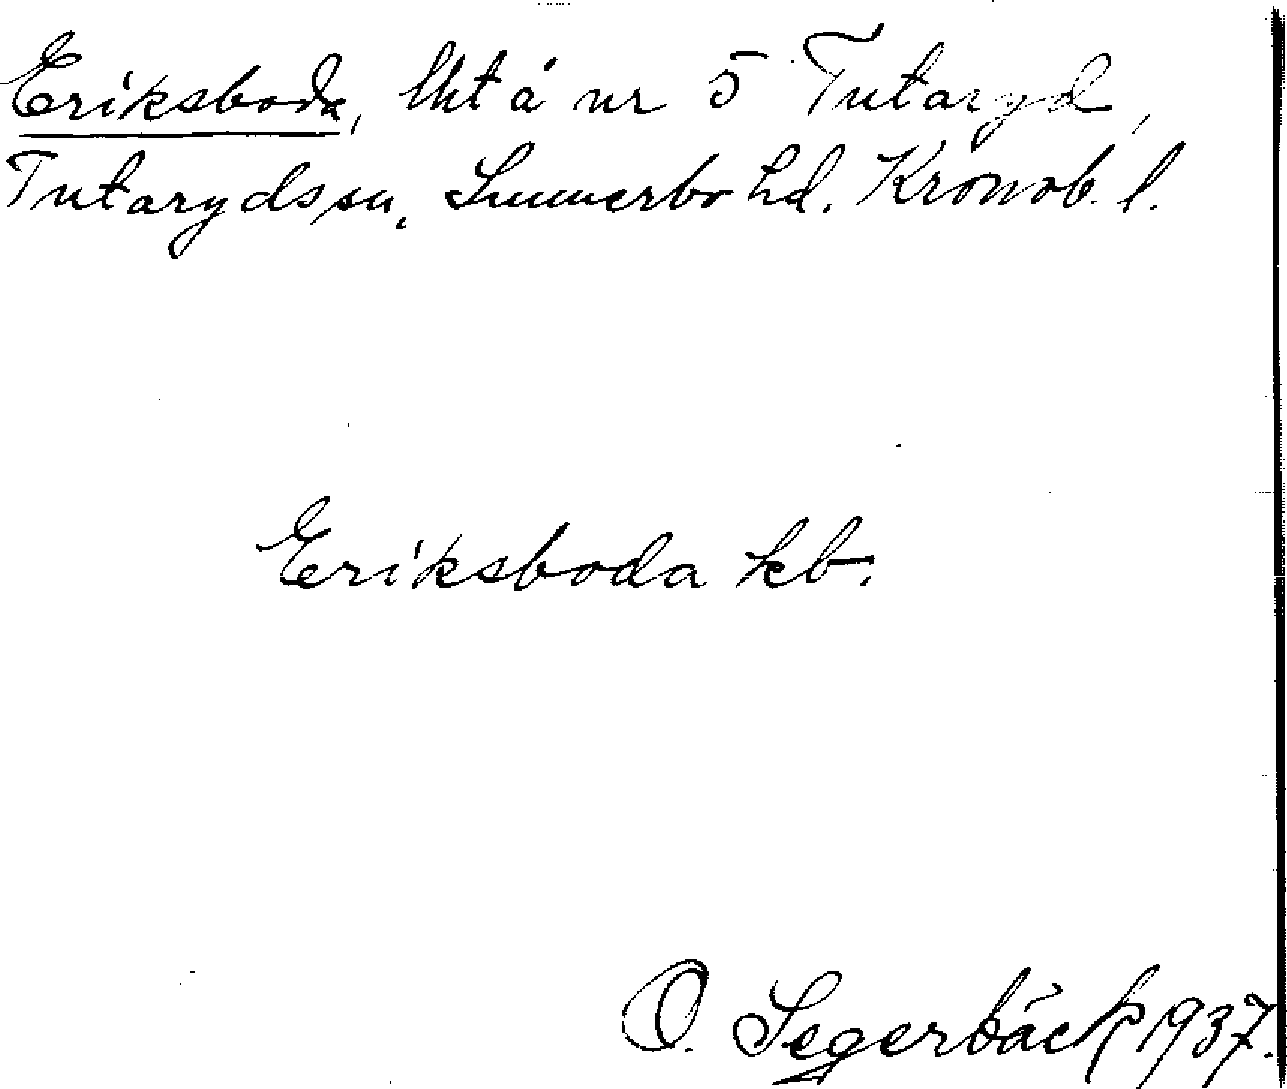 Eriksboda, lht å nr 5 Tutaryd,
Tutaryds sn, Sunnerbo hd. Kronob. l.
Eriksboda kb.
O. Segerbäck 1937.